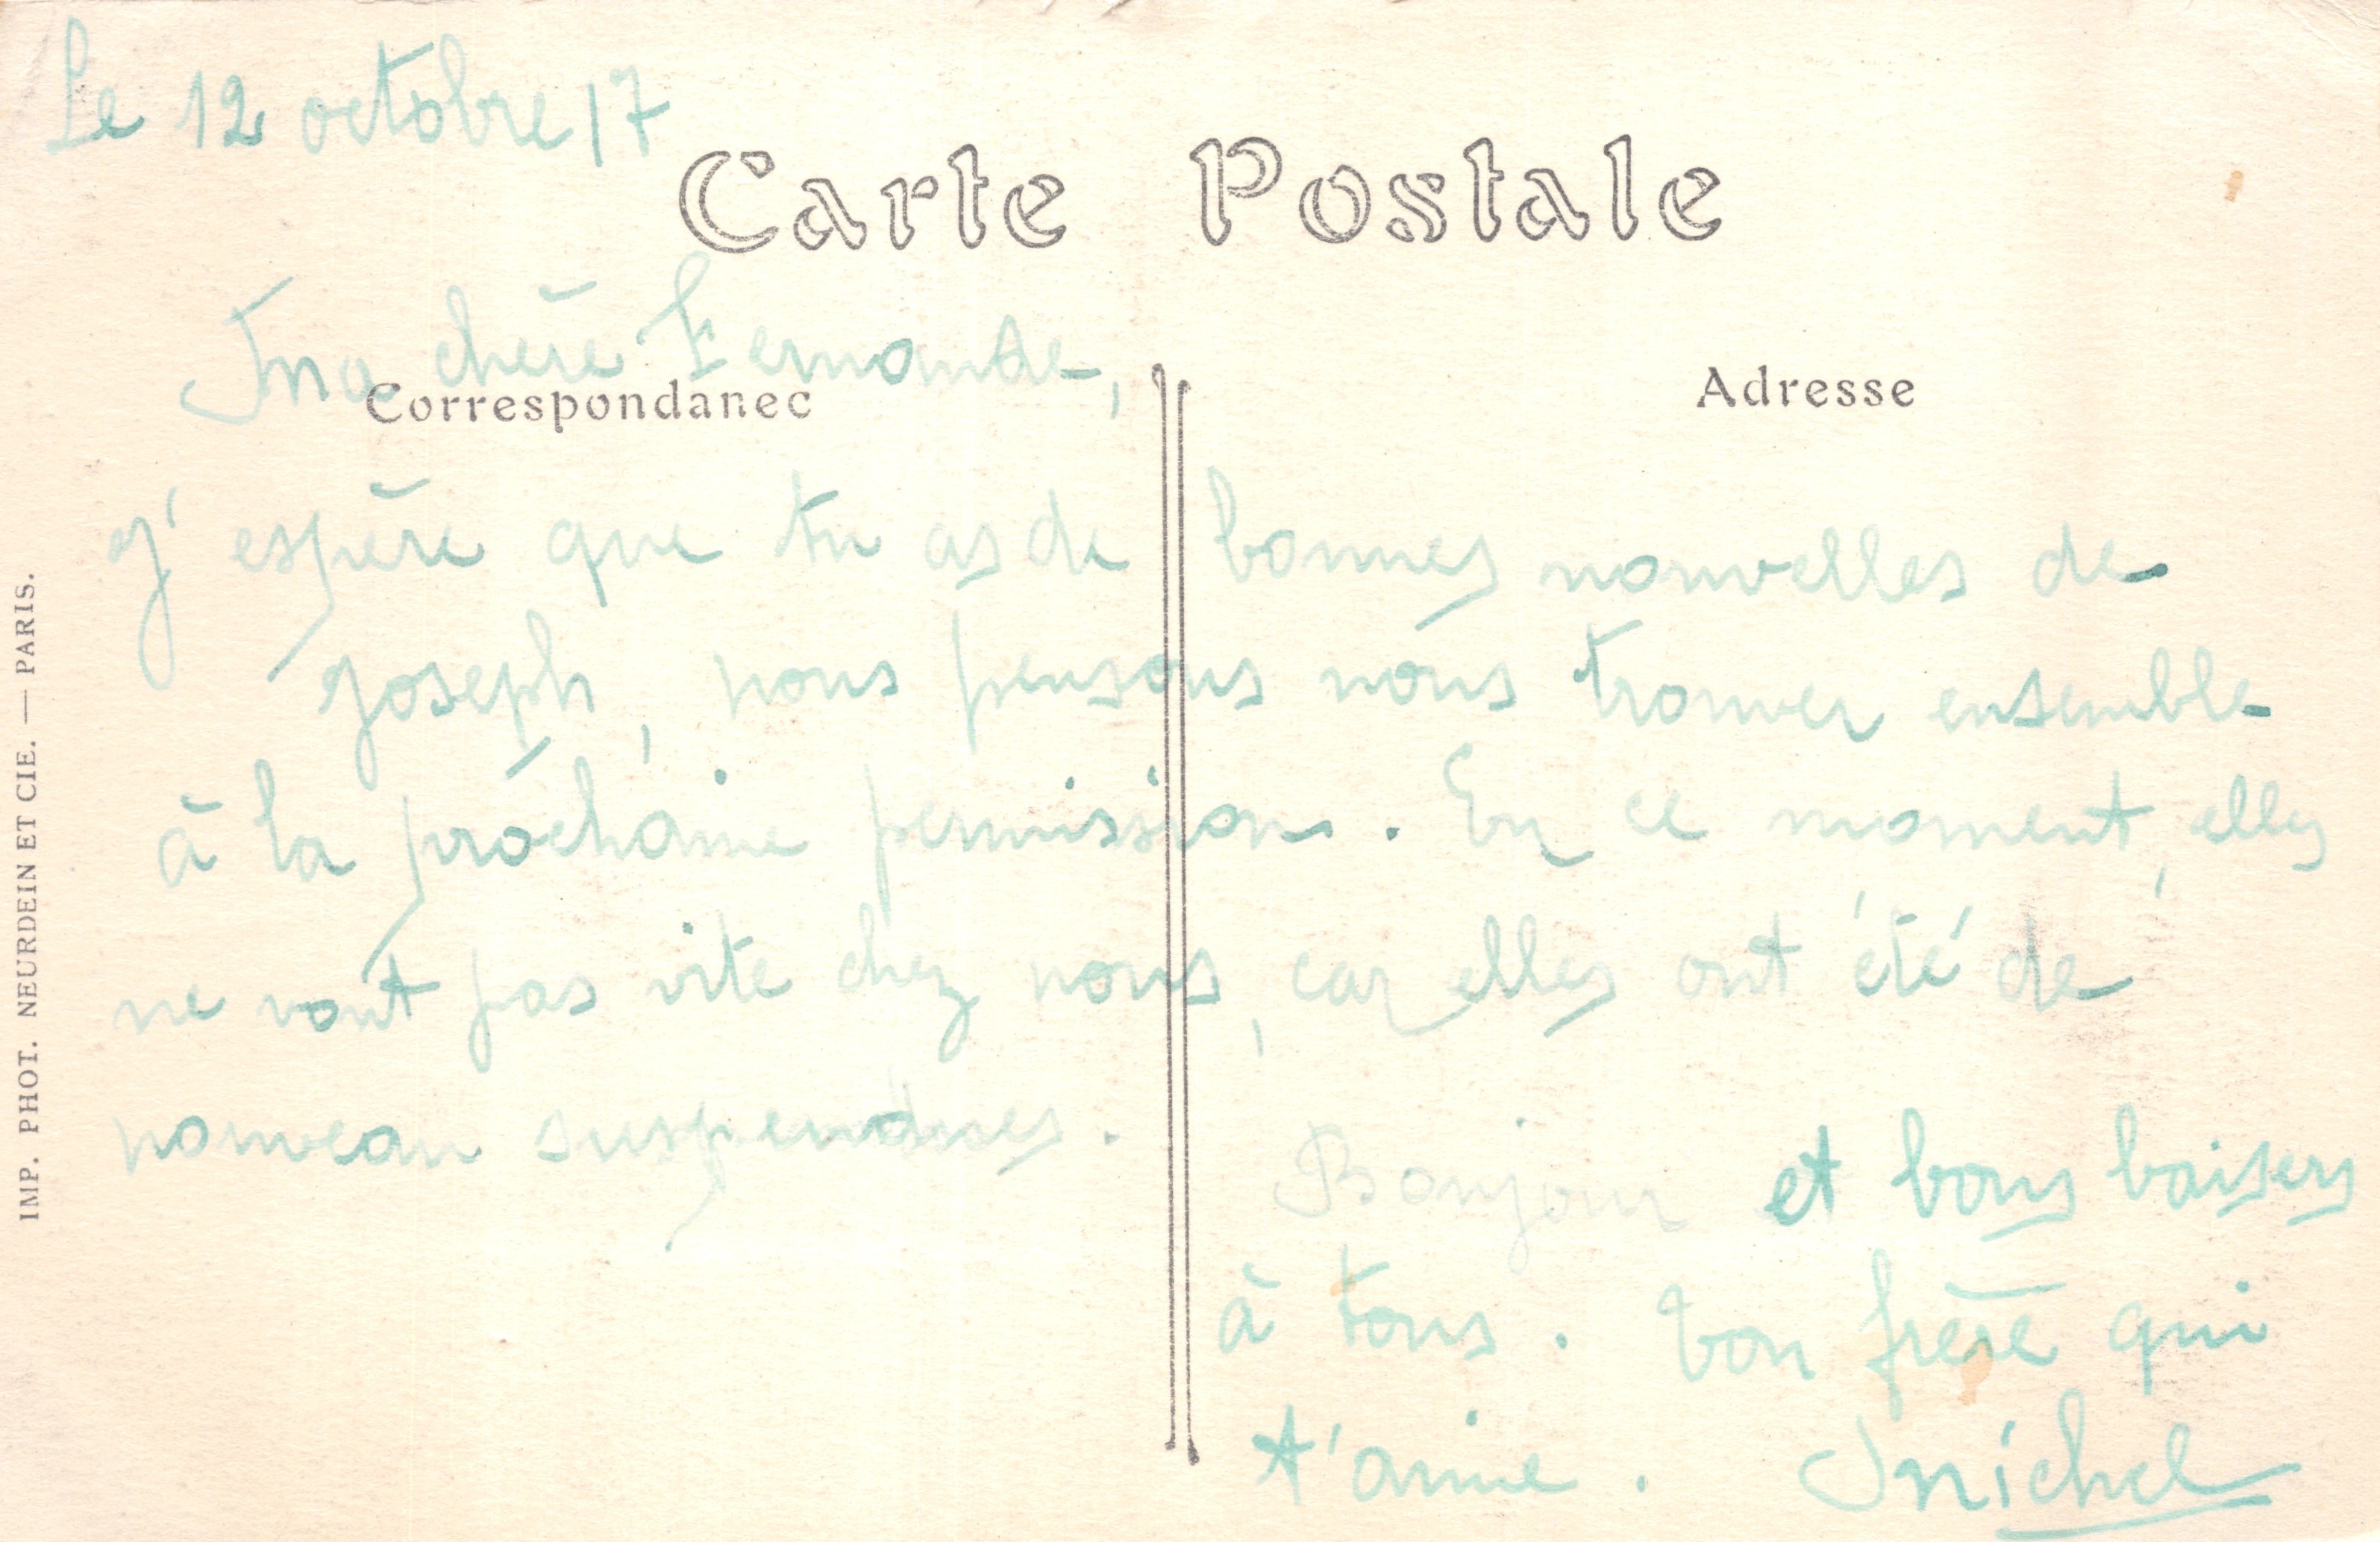 Le 12 octobre 17
Carte Postale
Ma chère Fernande,
Correspondance
Adresse
J'espère que tu as de bonnes nouvelles de
Joseph, nous pensons nous trouver ensemble
à la prochaine permission. En ce moment, elles
ne vont pas vite chez nous, car elles ont été de
nouveau suspendues.
Bonjour et bons baisers
à tous. Ton frère qui
t'aime. Michel
IMP. PHOT. NEURDEIN ET CIE. — PARIS.